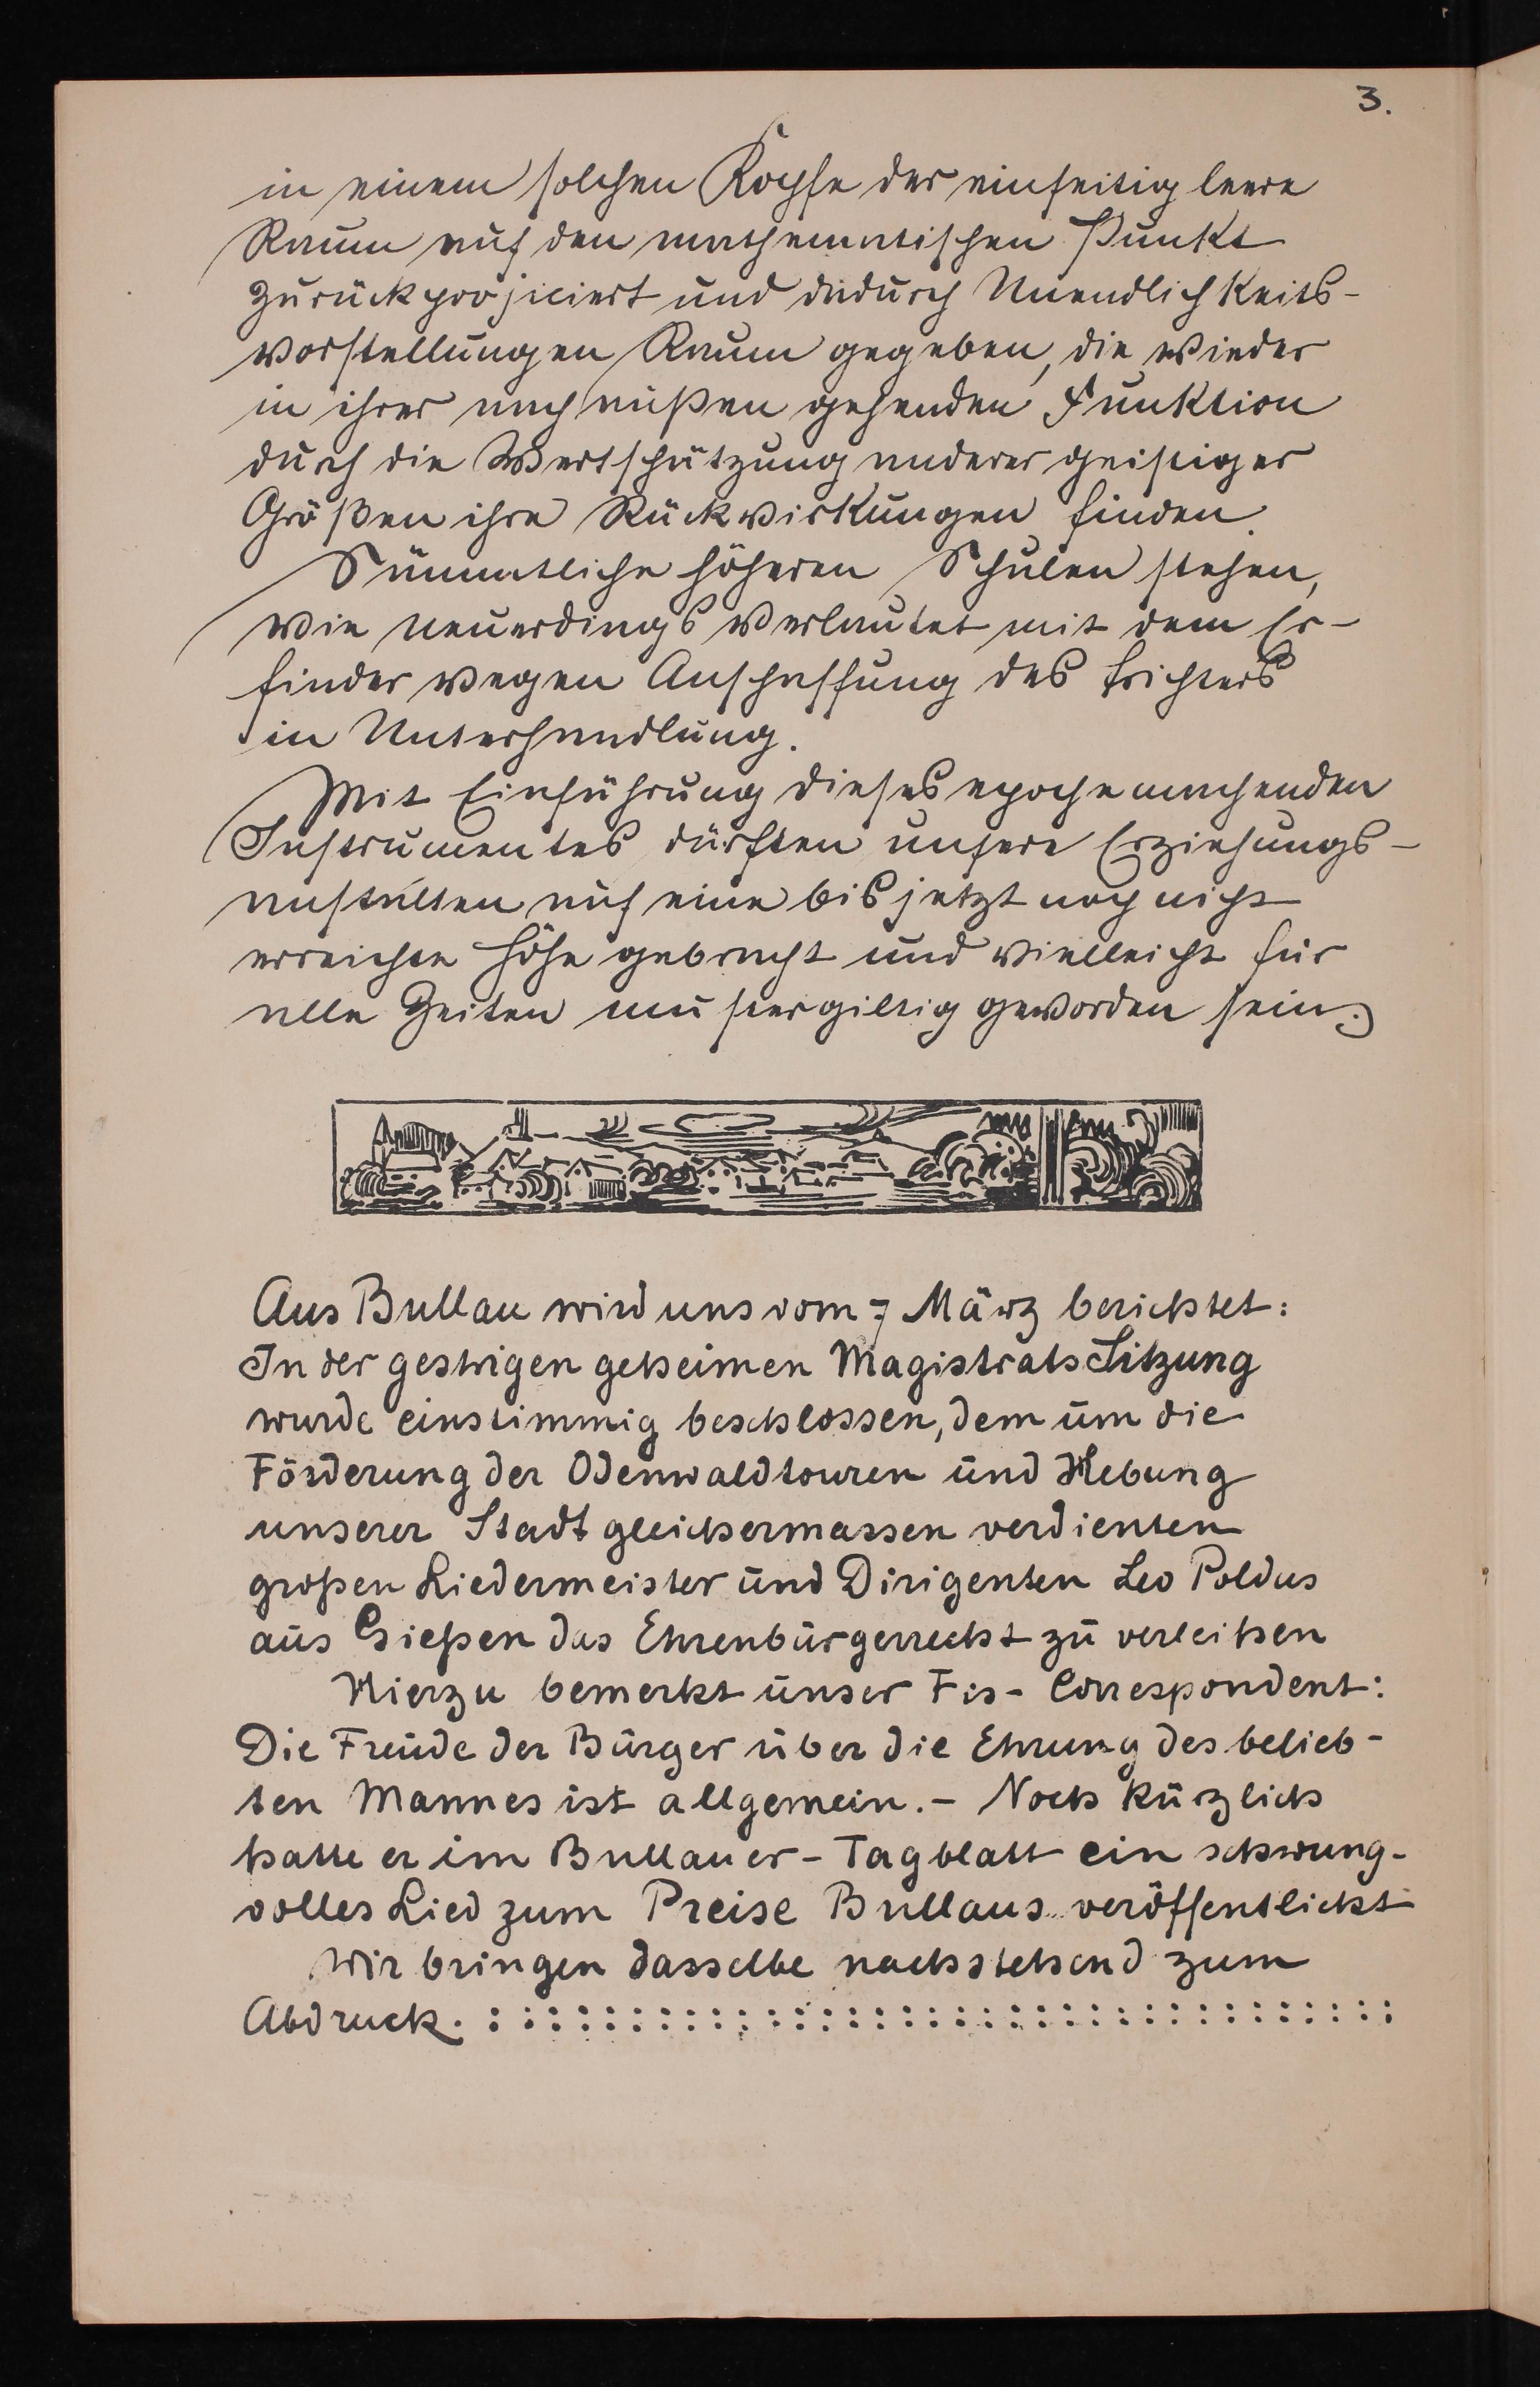 3.
in einem solchen Kopfe der einseitig leere
Raum auf den mathematischen Punkt
zurückprojiciert und dadurch Unendlichkeits-
vorstellungen Raum gegeben, die wieder
in ihrer nach außen gehenden Funktion
durch die Wertschätzung anderer geistiger
Größen ihre Rückwirkungen finden.
Sämmtliche höheren Schulen stehen,
wie neuerdings verlautet mit dem Er-
finder wegen Anschaffung des Trichters
in Unterhandlung.
Mit Einführung dieses epochemachenden
Instrumentes dürften unsere Erziehungs-
anstalten auf eine bis jetzt noch nicht
erreichte Höhe gebracht und vielleicht für
alle Zeiten mustergiltig geworden sein.
Aus Bullau wird uns vom 7 März berichtet:
In der gestrigen geheimen Magistrats Sitzung
wurde einstimmig beschlossen, dem um die
Förderung der Odenwaldtouren und Hebung
unserer Stadt gleichermassen verdienten
großen Liedermeister und Dirigenten Leo Poldus
aus Gießen das Ehrenbürgerrecht zu verleihen
Hierzu bemerkt unser Fis- Correspondent:
Die Freude der Bürger über die Ehrung des belieb-
ten Mannes ist allgemein. - Noch kürzlich
hatte er im Bullauer - Tagblatt ein schwung-
volles Lied zum Preise Bullaus veröffentlicht
Wir bringen dasselbe nachstehend zum
Abdruck.